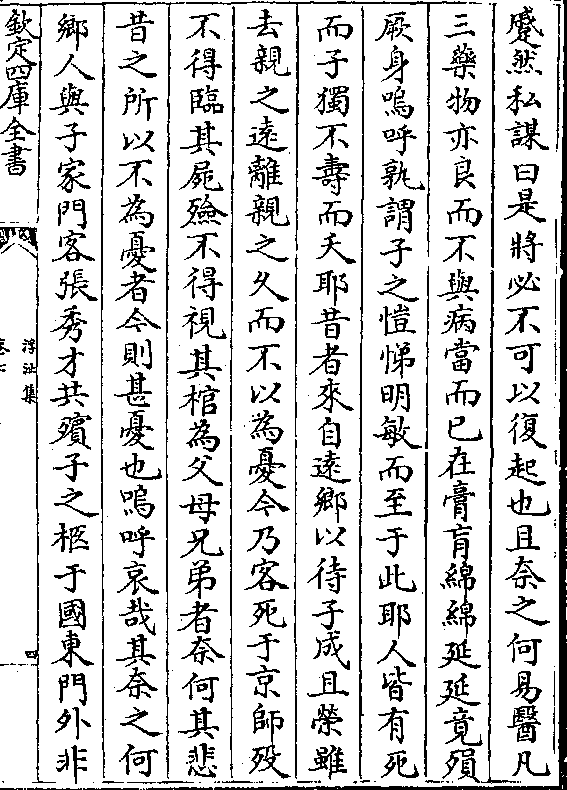 蹙然私謀曰是將必不可以復起也且奈之何易醫凡
三藥物亦良而不與病當而已在膏肓綿綿延延竟殞
厥身嗚呼孰謂子之愷悌明敏而至于此耶人皆有死
而子獨不壽而夭耶昔者來自遠鄉以待子成且榮雖
去親之遠離親之久而不以為憂今乃客死于京師殁
不得臨其屍殮不得視其棺為父母兄弟者奈何其悲
昔之所以不為憂者今則甚憂也嗚呼哀哉其奈之何
鄉人與子家門客張秀才共殯子之柩于國東門外非
欽定四庫全書
浮沚集
卷七
四